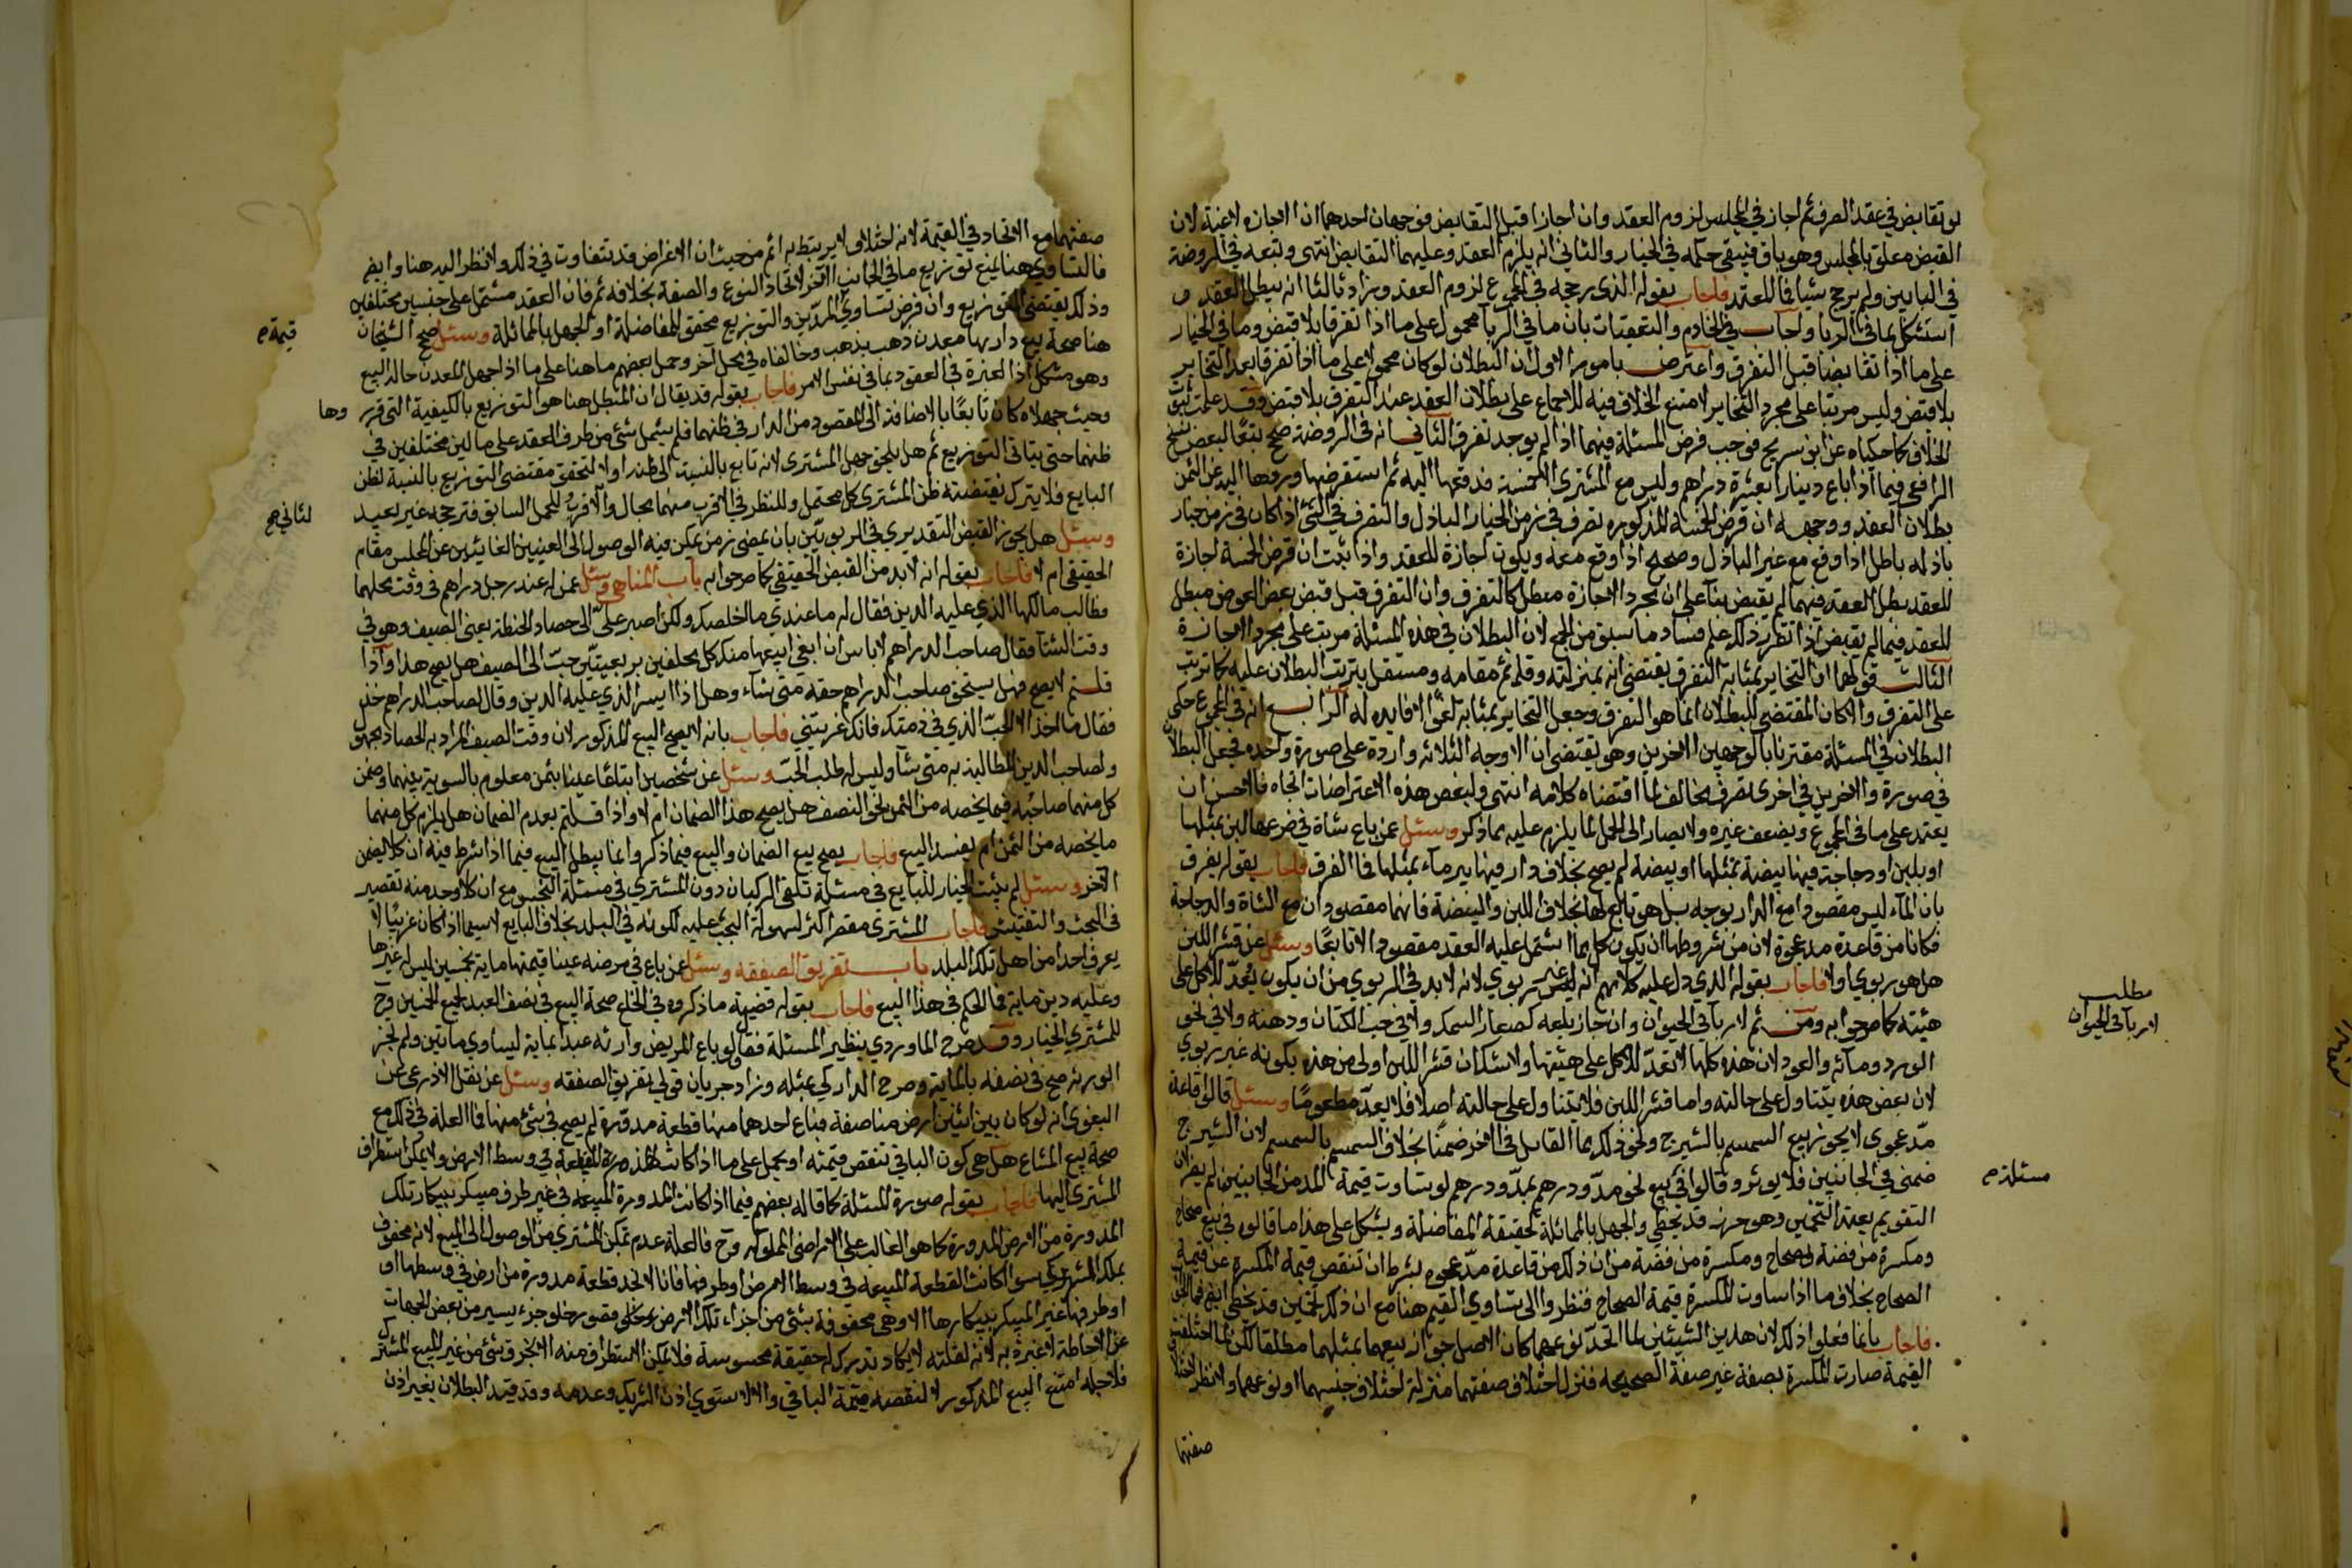 لو تقابض في عقد الصرف ثم اجاز في المجلس لزوم العقد وان اجازا قبل التقابض فوجهان احدهما ان الاجازه لاغية لان
القبض معلق بالمجلس وهو باق فيبقى حكمه في الخيار والثاني انه يلزم العقد وعليهما التقابض انتهى وتبعه في الروضة
في البابين ولم يرجح شيا فما المعتمد فاجاب بقوله الذي رجحه في المجموع لزوم العقد وزاد ثالثا انه يبطل العقد
استشكل بما في الربا واجاب في الخادم والتعقبات بان ما في الربا محمول على ما اذا تفرقا بلا قبض وما في الخيار
على ما اذا تقابضا قبل التفرق واعترض بامور الاول ان البطلان لو كان محمولا على ما اذا تفرقا بعد التخاير
بلا قبض وليس مرتبا على مجرد التخاير لامتنع الخلاف فيه للاجماع على بطلان العقد عند التفرق بلا قبض وقد علمت ثبوت
الخلاف كما حكياه عن ابن سريج فوجب فرض المسئلة فيهما اذا لم يوجد تفرق الثاني انه في الروضة صحح تبعا لبعض نسخ
الرافعي فيما اذا باع دينارا بعشرة دراهم وليس مع المشتري الا خمسة فدفعها اليه ثم استقرضها وردها اليه عن الثمن
بطلان العقد ووجهه ان قرض الخمسة المذكوره تصرف في زمن الخيار الباذل والتصرف في الشئ اذا كان في زمن خيار
باذله باطل اذا وقع مع غير الباذل وصحيح اذا وقع معه ويكون اجازة للعقد واذا ثبت ان قرض الخمسة اجازة
للعقد بطل العقد فيهما لم يقبض بناء على ان مجرد الاجازة مبطل كالتفرق وان التفرق قبل قبض بعض العوض مبطل
للعقد فيما لم يقبض اذا تقرر ذلك علم فساد ما سبق من الجمع لان البطلان في هذه المسئلة مرتب على مجرد الاجازة
الثالث قولهما ان التخاير بمثابة التفرق يقتضي انه بمنزلته وقائم مقامه ومستقل بترتب البطلان عليه كما ترتب
على التفرق والا كان المقتضي للبطلان انما هو التفرق وجعل التخاير بمثابته لغوا لا فايده له الرابع انه في المجموع حكى
البطلان في المسئلة مقترنا بالوجهين الاخرين وهو يقتضي ان الاوجه الثلاثه واردة على صورة واحده فجعل البطلان
في صورة والاخرين في اخرى تصرف مخالف لما اقتضاه كلامه انتهى ولبعض هذه الاعتراضات اتجاه فالاحسن ان
يعتمد على ما في المجموع ويضعف غيره ولا يصار الى الحمل لما يلزم عليه مما ذكر وسئل عمن باع شاة في ضرعها لبن بمثلها
او بلبن او دجاجة فيها بيضة بمثلها او بيضة لم يصح بخلاف دار فيها بير ماء بمثلها فما الفرق فاجاب بقوله يفرق
بان الماء ليس مقصودا مع الدار بوجه بل هو تابع لها بخلاف اللبن والبيضة فانهما مقصودان مع الشاة والدجاجة
فكانا من قاعدة مد عجوة لان من شروطها ان يكون كل مما اشتمل عليه العقد مقصودا لا تابعا وسئل عن قشر اللبن
هل هو ربوي او لا فاجاب بقوله الذي دل عليه كلامهم انه ليس غير ربوي لانه لا بد في الربوي من ان يكون يعد للاكل على
هيئته كما صرحوا به ومن ثم لا ربا في الحيوان وان جاز بلعه كصغار السمك ولا في حب الكتان ودهنه ولا في نحو
الورد ومائه والعود لان هذه كلها لا تعد للاكل على هيئتها ولا شك ان قشر اللبن اولى من هذه بكونه غير ربوي
لان بعض هذه يتناول على حالته واما قشر اللبن فلا يتناول على حالته اصلا فلا يعد مطعوما وسئل قالوا قاعدة
مد عجوى لا يجوز بيع السمسم بالشيرج ونحو ذلك بما القابل في الاخر ضمنا بخلاف السمسم بالسمسم لان الشيرج
ضمني في الجانبين فلا يوثر وقالوا في بيع نحو مد ودرهم بمد ودرهم لو تساوت قيمة المد من الجانبين لم يضر لان
التقويم يعتمد التخمين وهو حزر قد يخطي والجهل بالمماثلة كحقيقة المفاضلة ويشكل على هذا ما قالوه في بيع صحاح
ومكسرة من فضة بصحاح ومكسرة من فضة من ان ذلك من قاعدة مد عجوه بشرط ان تنقص قيمة المكسرة عن قيمة
الصحاح بخلاف ما اذا ساوت المكسرة قيمة الصحاح فنظروا الى تساوي القيم هنا مع ان ذلك تخمين قد يخطي ايضا فما الفرق
فاجاب بانما فعلوا ذلك لان هذين الشيئين لما اتحد نوعهما كان الاصل جواز بيعهما بمثلهما مطلقا لكن لما اختلفت
القيمة صارت المكسرة بصفة غير صفة الصحيحه فنزل اختلاف صفتهما منزلة اختلاف جنسهما او نوعهما ولا نظر لاختلاف
صفتهما
مطلب
لا ربا في الحيوان
مسئلة
صفتهما مع الاتحاد في القيمة لانه اختلاف لا يرتبط به ثم من حيث ان الاغراض قد تتفاوت في ذلك ولا نظر اليه هنا وايضا
فالتساوي هنا يمنع توزيع ما في الجانب الاخر لاتحاد النوع والصفة بخلافه ثم فان العقد مشتمل على جنسين مختلفين
وذلك يقتضي التوزيع وان فرض تساوي المدين والتوزيع محقق للمفاضلة او الجهل بالمماثلة وسئل صحح الشيخان
هنا صحة بيع دار بها معدن ذهب بذهب وخالفاه في محل آخر وحمل بعضهم ما هنا على ما اذا جهل المعدن حالة البيع
وهو مشكل اذ العبرة في العقود بما في نفس الامر فاجاب بقوله قد يقال ان المبطل هنا هو التوزيع بالكيفية التي قرروها
وحيث جهلاه كان تابعا بالاضافة الى المقصود من الدار في ظنهما فلم يشمل شئ من طرف العقد على مالين مختلفين في
ظنهما حتى يتاتى التوزيع ثم هل يلحق جهل المشتري لانه تابع بالنسبة الى ظنه او لا لتحقق مقتضى التوزيع بالنسبة لظن
البايع فلا يترك بقضية ظن المشتري كل محتمل وللنظر في الاقرب منهما مجال والاقرب للحمل السابق فترجحه غير بعيد
وسئل هل يجوز القبض التقديري في الربويين بان يمضي زمن يمكن فيه الوصول الى العينين الغايبتين عن المجلس مقام
الحقيقي ام لا فاجاب بقوله انه لا بد من القبض الحقيقي كما صرحوا به باب المناهي وسئل عمن له عند رجل دراهم في وقت محلهما
وطالب مالكها الذي عليه الدين فقال له ما عندي ما اخلصك ولكن اصبر علي الى حصاد الحنطة يعني الصيف وهو في
وقت الشتا فقال صاحب الدراهم لا باس ان ابغي ابيعها منك كل محلقين بربعيتين حب الى الصيف هل يصح هذا واذا
قلتم لا يصح فهل يستحق صاحب الدراهم حقه متى شاء وهل اذا ايسر الذي عليه الدين وقال لصاحب الدراهم خذ
فقال ما اخذ الا الحب الذي في ذمتك فانك غريتني فاجاب بانه لا يصح البيع المذكور لان وقت الصيف المراد به الحصاد مجهول
ولصاحب الدين المطالبة به متى شآ وليس له طلب الحب وسئل عن شخصين ابتاعا عينا بثمن معلوم بالسوية بينهما وضمن
كل منهما صاحبه فيما يخصه من الثمن نحو النصف هل يصح هذا الضمان ام لا واذا قلتم بعدم الضمان هل يلزم كل منهما
ما يخصه من الثمن ام يفسد البيع فاجاب يصح بيع الضمان والبيع فيما ذكر وانما يبطل البيع فيما اذا شرط فيه ان كلا يضمن
الآخر وسئل لم يثبت الخيار للبايع في مسئلة تلقي الركبان دون المشتري في مسئلة النجش مع ان كلا وجد منه تقصير
في البحث والتفتيش فاجاب المشتري مقصر اكثر لسهولة البحث عليه لكونه في البلد بخلاف البايع لا سيما اذا كان غريبا لا
يعرف احدا من اهل تلك البلد باب تفريق الصفقه وسئل عمن باع في مرضه عينا قيمتها ماية بخمسين ليس له غيرها
وعليه دين ماية فما الحكم في هذا البيع فاجاب بقوله قضية ما ذكروه في الخلع صحة البيع في نصف العبد بجميع الخمسين وح
للمشتري الخيار وقد صرح الماوردي بنظير المسئلة فقال لو باع المريض وارثه عبدا بماية ليساوي مائتين ولم تجز
الورثه صح في نصفه بالماية وصرح الداركي بمثله وزاد جريان قولي تفريق الصفقه وسئل عن نقل الاذرعي عن
البغوي انه لو كان بين اثنين ارض مناصفة فباع احدهما منها قطعة مدورة لم يصح في شئ منها فما العلة في ذلك مع
صحة بيع المشاع هل هي كون الباقي تنقص قيمته او يحمل على ما اذا كانت هذه القطعة في وسط الارض ولا يمكن استطراق
المشتري اليها فاجاب بقوله صورة المسئلة كما قاله بعضهم فيما اذا كانت المدورة المبيعه في غير طرف
المدورة من الارض المدورة كما هو الغالب على الاراضي المملوكه وح فالعلة عدم تمكن المشتري من الوصول الى المبيع لانه محفوف
بملك الشريك سوا كانت القطعة المبيعه في وسط الارض او طرفها فانا لا نجد قطعة مدورة من ارض في وسطها او
او طرفها الا وهي محفوفة بشئ من اجزاء تلك الارض وخلو جزء يسير من بعض الجهات
عن الاحاطة لا عبرة به لانه لقلته لا يكاد تدرك له حقيقة محسوسة فلا يمكن الاستطراق منه الا بخرق شئ من غير المبيع المشترك
فلاجله امتنع البيع المذكور لا لنقصه قيمة الباقي والا لاستوى اذن الشريك وعدمه وقد قيد البطلان بغير اذن
قيمة
وها
الثاني صح